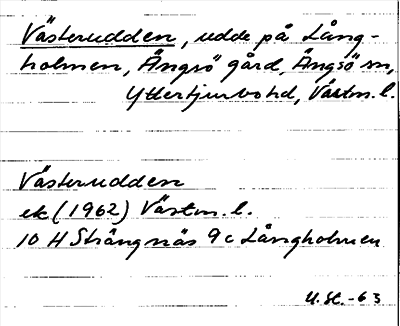 Västerudden, udde på Lång-
holmen, Ängsö gård, Ängsö sn,
Yttertjurbo hd, Västm. l.
Västerudden
ek (1962) Västm. l.
10 H Strängnäs 9 c Långholmen
U. St. -63